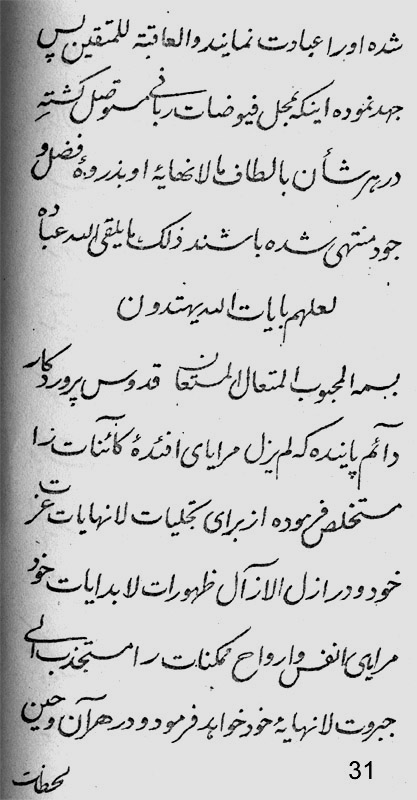 شده اورا عبادت نمایند والعاقبة للمتقین پس
جهد نموده اینکه بمحل فیوضات ربانی متوصل گشته
در هر شأن بالطاف مالانهایهٔ او بذروهٔ فضل و
جود منتهی شده باشند ذلک مایلقی الله عباده
لعلهم بایات الله یهتدون
بسمه المحبوب المتعال المستعان قدوس پروردکار
دائم پاینده که لم یزل مرایای افئدهٔ کائنات را
مستخلص فرموده از برای تجلیات لانهایات عزت
خود و در ازل الازآل ظهورات لابدایات خود
مرایای انفس وارواح ممکنات را مستجذب الی
جبروت لانهایهٔ خود خواهد فرمود و در هر آن وحین
لحظات
31